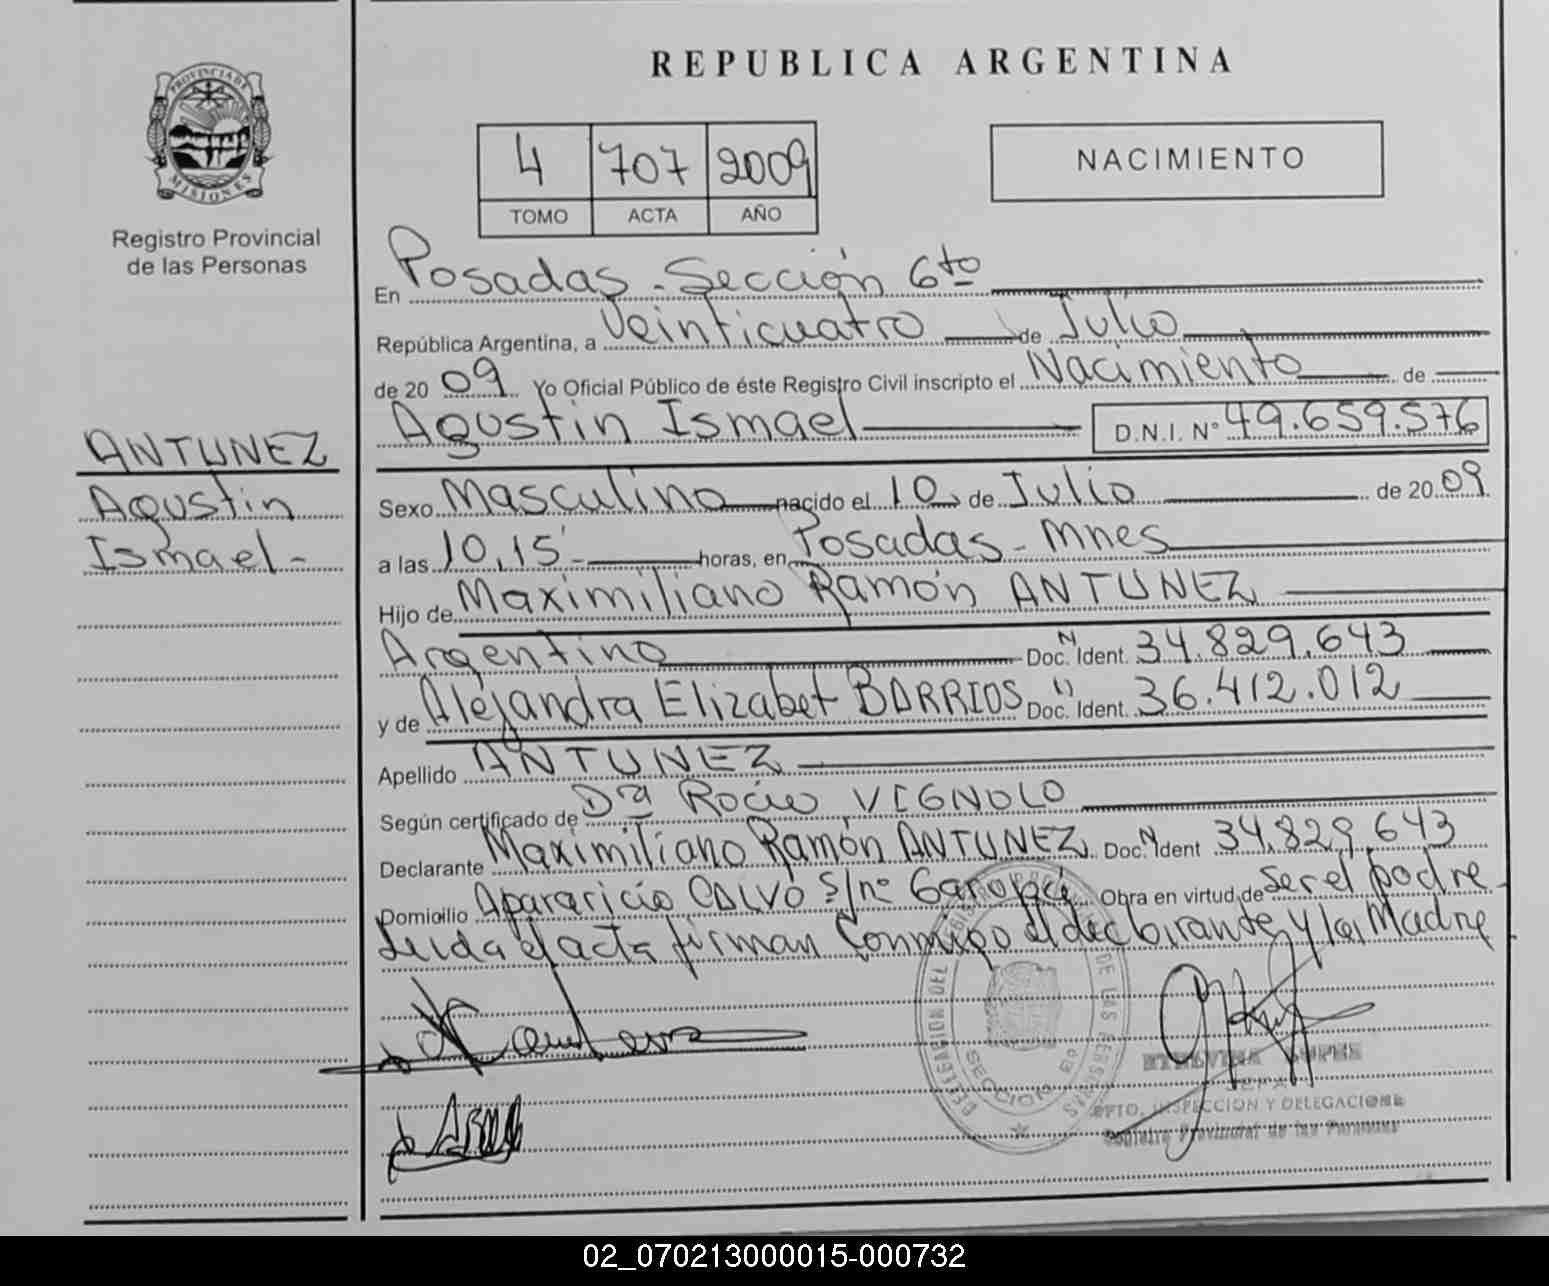 REPUBLICA ARGENTINA
PROVINCIA DE
MISIONES
Registro Provincial
de las Personas
4 707 2009
TOMO ACTA AÑO
NACIMIENTO
En Posadas - Sección 6to
República Argentina, a Veinticuatro de Julio
de 2009 Yo Oficial Público de éste Registro Civil inscripto el Nacimiento de
Agustin Ismael D.N.I. Nº 49.659.576
ANTUNEZ
Agustin
Ismael-
Sexo Masculino nacido el 10 de Julio de 2009
a las 10,15' horas, en Posadas - Mnes
Hijo de Maximiliano Ramón ANTUNEZ
Argentino Doc. N Ident. 34.829.643
y de Alejandra Elizabet BARRIOS Doc. " Ident. 36.412.012
Apellido ANTUNEZ
Según certificado de Dra Rocio VIGNOLO
Declarante Maximiliano Ramón ANTUNEZ Doc. N Ident 34.829.643
Domicilio Apararicio CALVO S/nº Garopá Obra en virtud de ser el padre-
Leida el acta firman Conmigo el declarante y la Madre
DELEGACION DEL REGISTRO PROVINCIAL DE LAS PERSONAS
SECCION
JEFA
DPTO. INSPECCION Y DELEGACIONES
Registro Provincial de las Personas
02_070213000015-000732